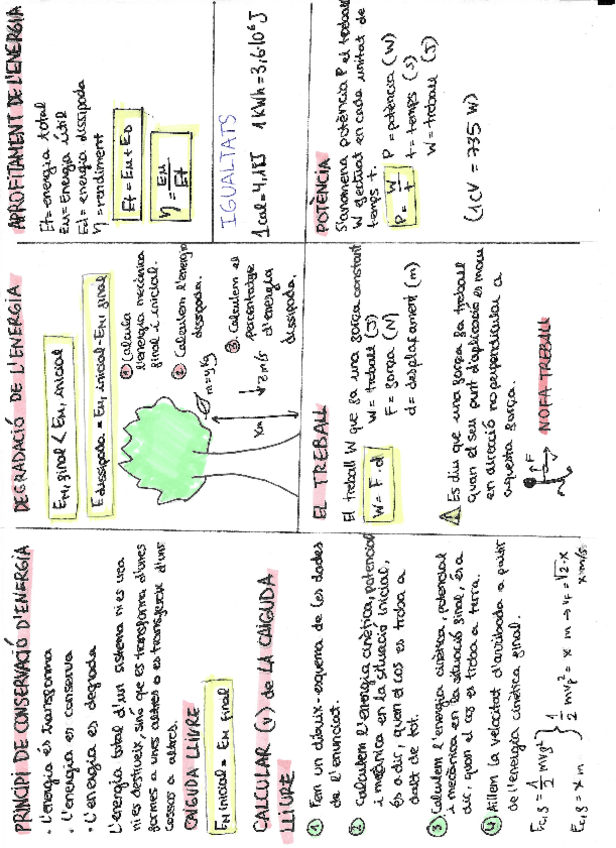 PRINCIPI DE CONSERVACIÓ D'ENERGIA
· L'energia és transforma
· L'energia es conserva
· L'energia es degrada
L'energia total d'un sistema ni es crea
ni es destrueix, sinó que es transforma d'unes
formes a unes altres o es transfereix d'uns
cossos a altres.
CAIGUDA LLIURE
EM inicial = EM final
CALCULAR (v) de LA CAIGUDA
LLIURE
1 Fem un dibuix-esquema de les dades
de l'enunciat.
2 Calculem l'energia cinètica, potencial
i mecànica en la situació inicial,
és a dir, quan el cos es troba a
dalt de tot.
3 Calculem l'energia cinètica, potencial
i mecànica en la situació final, és a
dir, quan el cos es troba a terra.
4 Aïllem la velocitat d'arribada a partir
de l'energia cinètica final.
Ec,f = 1/2 mvf² } 1/2 mvf² = x m → vF = √2·x
Ec,f = x m
x m/s
DEGRADACIÓ DE L'ENERGIA
EM, final < EM, inicial
Edissipada = EM, inicial - EM final
1 Calcula
l'energia mecànica
final i inicial.
2 Calculem l'energia
dissipada.
3 Calculem el
percentatge
d'energia
dissipada.
m = y kg
xm
z m/s
EL TREBALL
El treball W que fa una força constant
W = F · d
W = treball (J)
F = força (N)
d = desplaçament (m)
Es diu que una força fa treball
quan el seu punt d'aplicació es mou
en direcció no perpendicular a
aquesta força.
F
→ NO FA TREBALL
APROFITAMENT DE L'ENERGIA
Et = energia total
EM = Energia útil
Ed = energia dissipada
η = rendiment
Et = EM + ED
η = EM/Et
IGUALTATS
1 cal = 4,18J 1 KWh = 3,6·10⁶ J
POTÈNCIA
S'anomena potència P el treball
W efectuat en cada unitat de
temps t.
P = W/t
P = potència (W)
t = temps (s)
W = treball (J)
(1CV = 735 W)